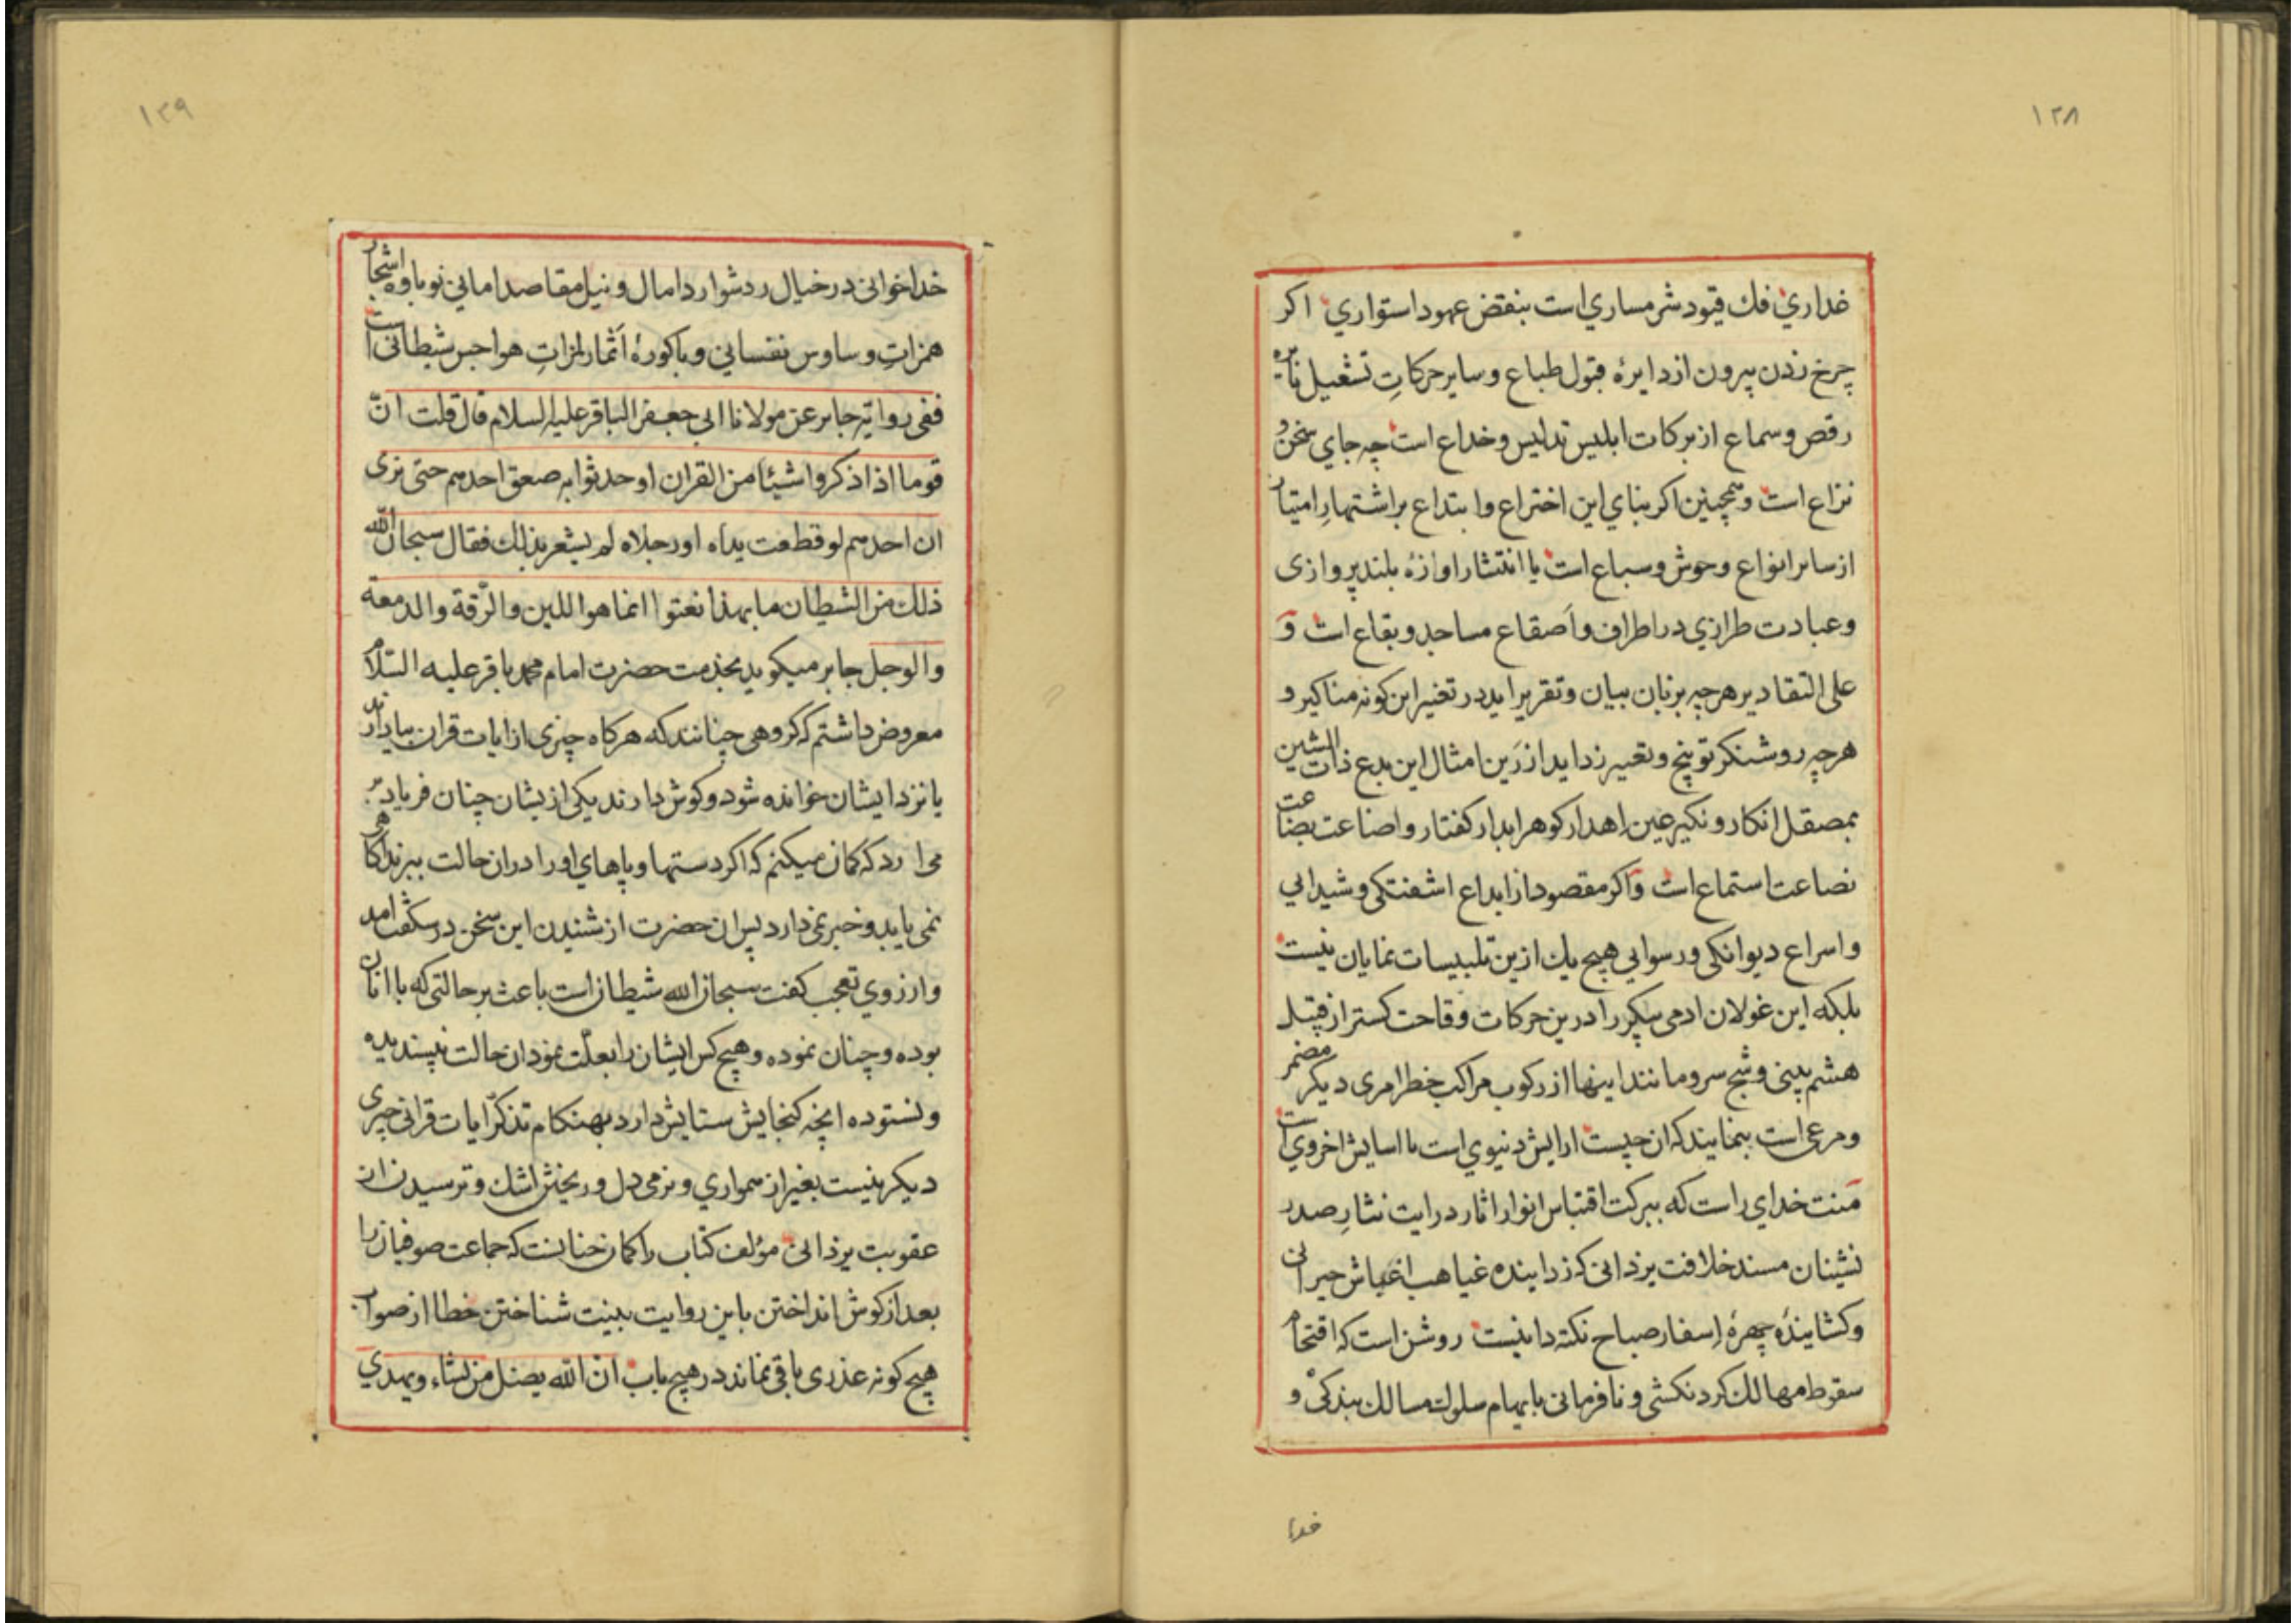 ۱۲۸
غداري فك قيود شرمساري است بنقض عهود استواري اكر
چرخ زدن بيرون از دايرهٔ قبول طباع و ساير حركاتِ تشغيل نايره
رقص و سماع از بركات ابليس تدليس و خداع است چه جاي سخن و
نزاع است وهمچنين اكر بناي اين اختراع وابتداع بر اشتهارِ امتياز
از ساير انواع وحوش و سباع است يا انتشار اوازهٔ بلند پروازى
وعبادت طرازي در اطراف و اَصقاع مساجد و بقاع است وَ
على التقادير هرچه بر زبان بيان و تقرير ايد در تغيير اين كونه مناكير و
هرچه روشنكر توبيخ و تعيير زدايد از رَين امثال اين بدع ذات الشين
بمصقل انكار و نكير عين اهدار كوهر ابدار كفتار و اضاعت بضاعت
نصاعت استماع است وَاكر مقصود از ابداع اشفتكى و شيدايي
واسراع ديوانكى و رسوايي هيچ يك ازين تلبيسات نمايان نيست
بلكه اين غولان ادمى پيكر را درين حركات وقاحت كستر از قبيل
هشم بينى و شج سر و مانند اينها از ركوب مراكب خطر امرى ديكر مضمر
ومرعى است بنمايند كه ان چيست ارايش دنيوي است يا اسايش اخروي است
مَنت خداي راست كه ببركت اقتباس انوار اثار درايت نثارِ صدر
نشينان مسند خلافت يزدانى كه زداينده غياهب اغباش حيرانى
وكشايندهٔ چهرهٔ اِسفار صباح نكته دانيست روشن است كه اقتحام
سقوط مهالك كردنكشى و نافرمانى بايهام سلوك مسالك بندكى و
خدا
۱۲۹
خداخوانى در خيال رد شوارد امال و نيل مقاصد امانى نوباوهٔ اشجار
همزاتِ وساوس نفساني و باكورهٔ اَثمار لمزاتِ هواجس شيطانى است
ففى رواية جابر عن مولانا ابي جعفر الباقر عليه السلام قال قلت انّ
قوما اذا ذكروا شيئا من القران او حدثوا به صعق احدهم حتى نرى
ان احدهم لو قطعت يداه او رجلاه لم يشعر بذلك فقال سبحان الله
ذلك من الشيطان ما بهذا نعتوا انما هو اللين والرّقة والدمعة
والوجل جابر ميكويد بخدمت حضرت امام محمد باقر عليه السّلام
معروض داشتم كه كروهى چنانند كه هركاه چيزى از ايات قران بياد ارند
يا نزد ايشان خوانده شود و كوش دارند يكى از يشان چنان فرياد بر
مى ارد كه كمان ميكنم كه اكر دستها و پاهاي او را دران حالت ببرند اكاهى
نمى يابد و خبر نمى دارد پس ان حضرت از شنيدن اين سخن در شكفت امد
و از روي تعجب كفت سبحان الله شيطان است باعث بر حالتى كه با انان
بوده و چنان نموده و هيچ كس ايشان را بعلّت نمود ان حالت نپسنديده
و نستوده انچه كنجايش ستايش دارد بهنكام تذكّر ايات قرانى چيزى
ديكر نيست بغير از همواري و نرمى دل و ريختن اشك و ترسيدن از
عقوبت يزدانى مؤلف كتاب را كمان چنانست كه جماعت صوفيان را
بعد از كوش انداختن باين روايت بنيت شناختن خطا از صواب
هيچ كونه عذرى باقى نماند در هيچ باب انّ الله يضل من يشاء ويهدي